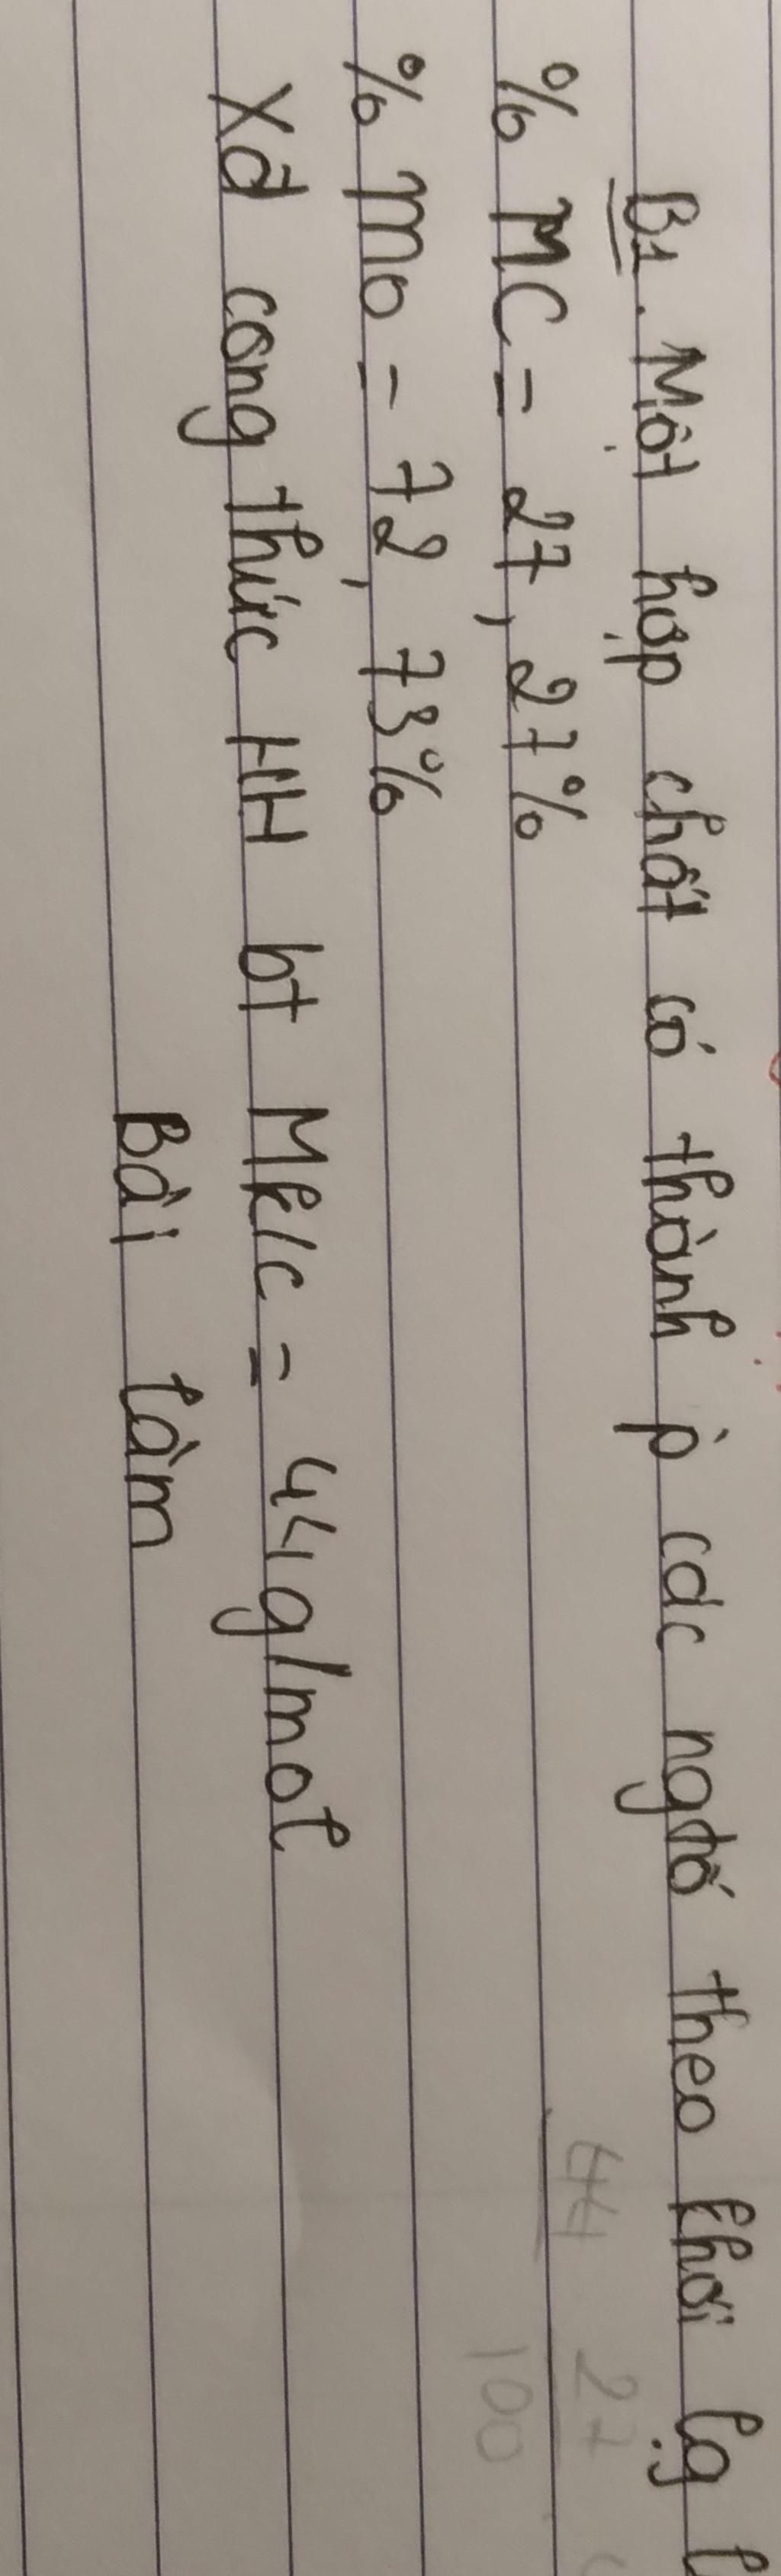 B1. Một hợp chất có thành p̀ các ngtố theo khối lg l
% MC = 27,27%
% mo = 72,73%
Xđ công thức HH bt Mk/c = 44g/mol
Bài làm
44 27
100